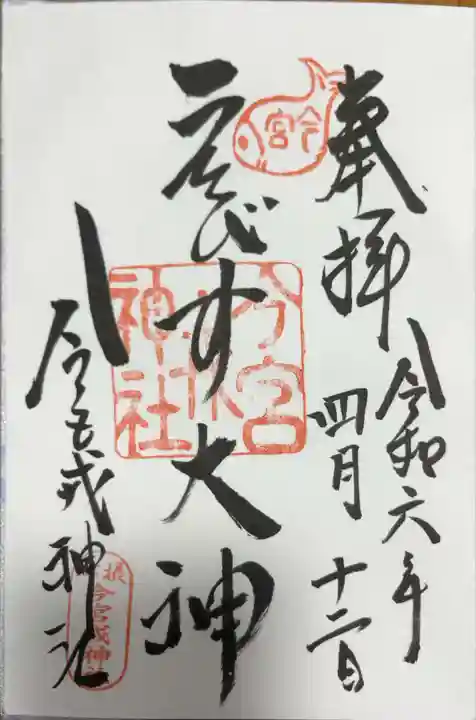 奉拝
令和六年
四月十二日
今宮
ゑびす大神
今宮
神社
今宮戎神社
今宮戎神社